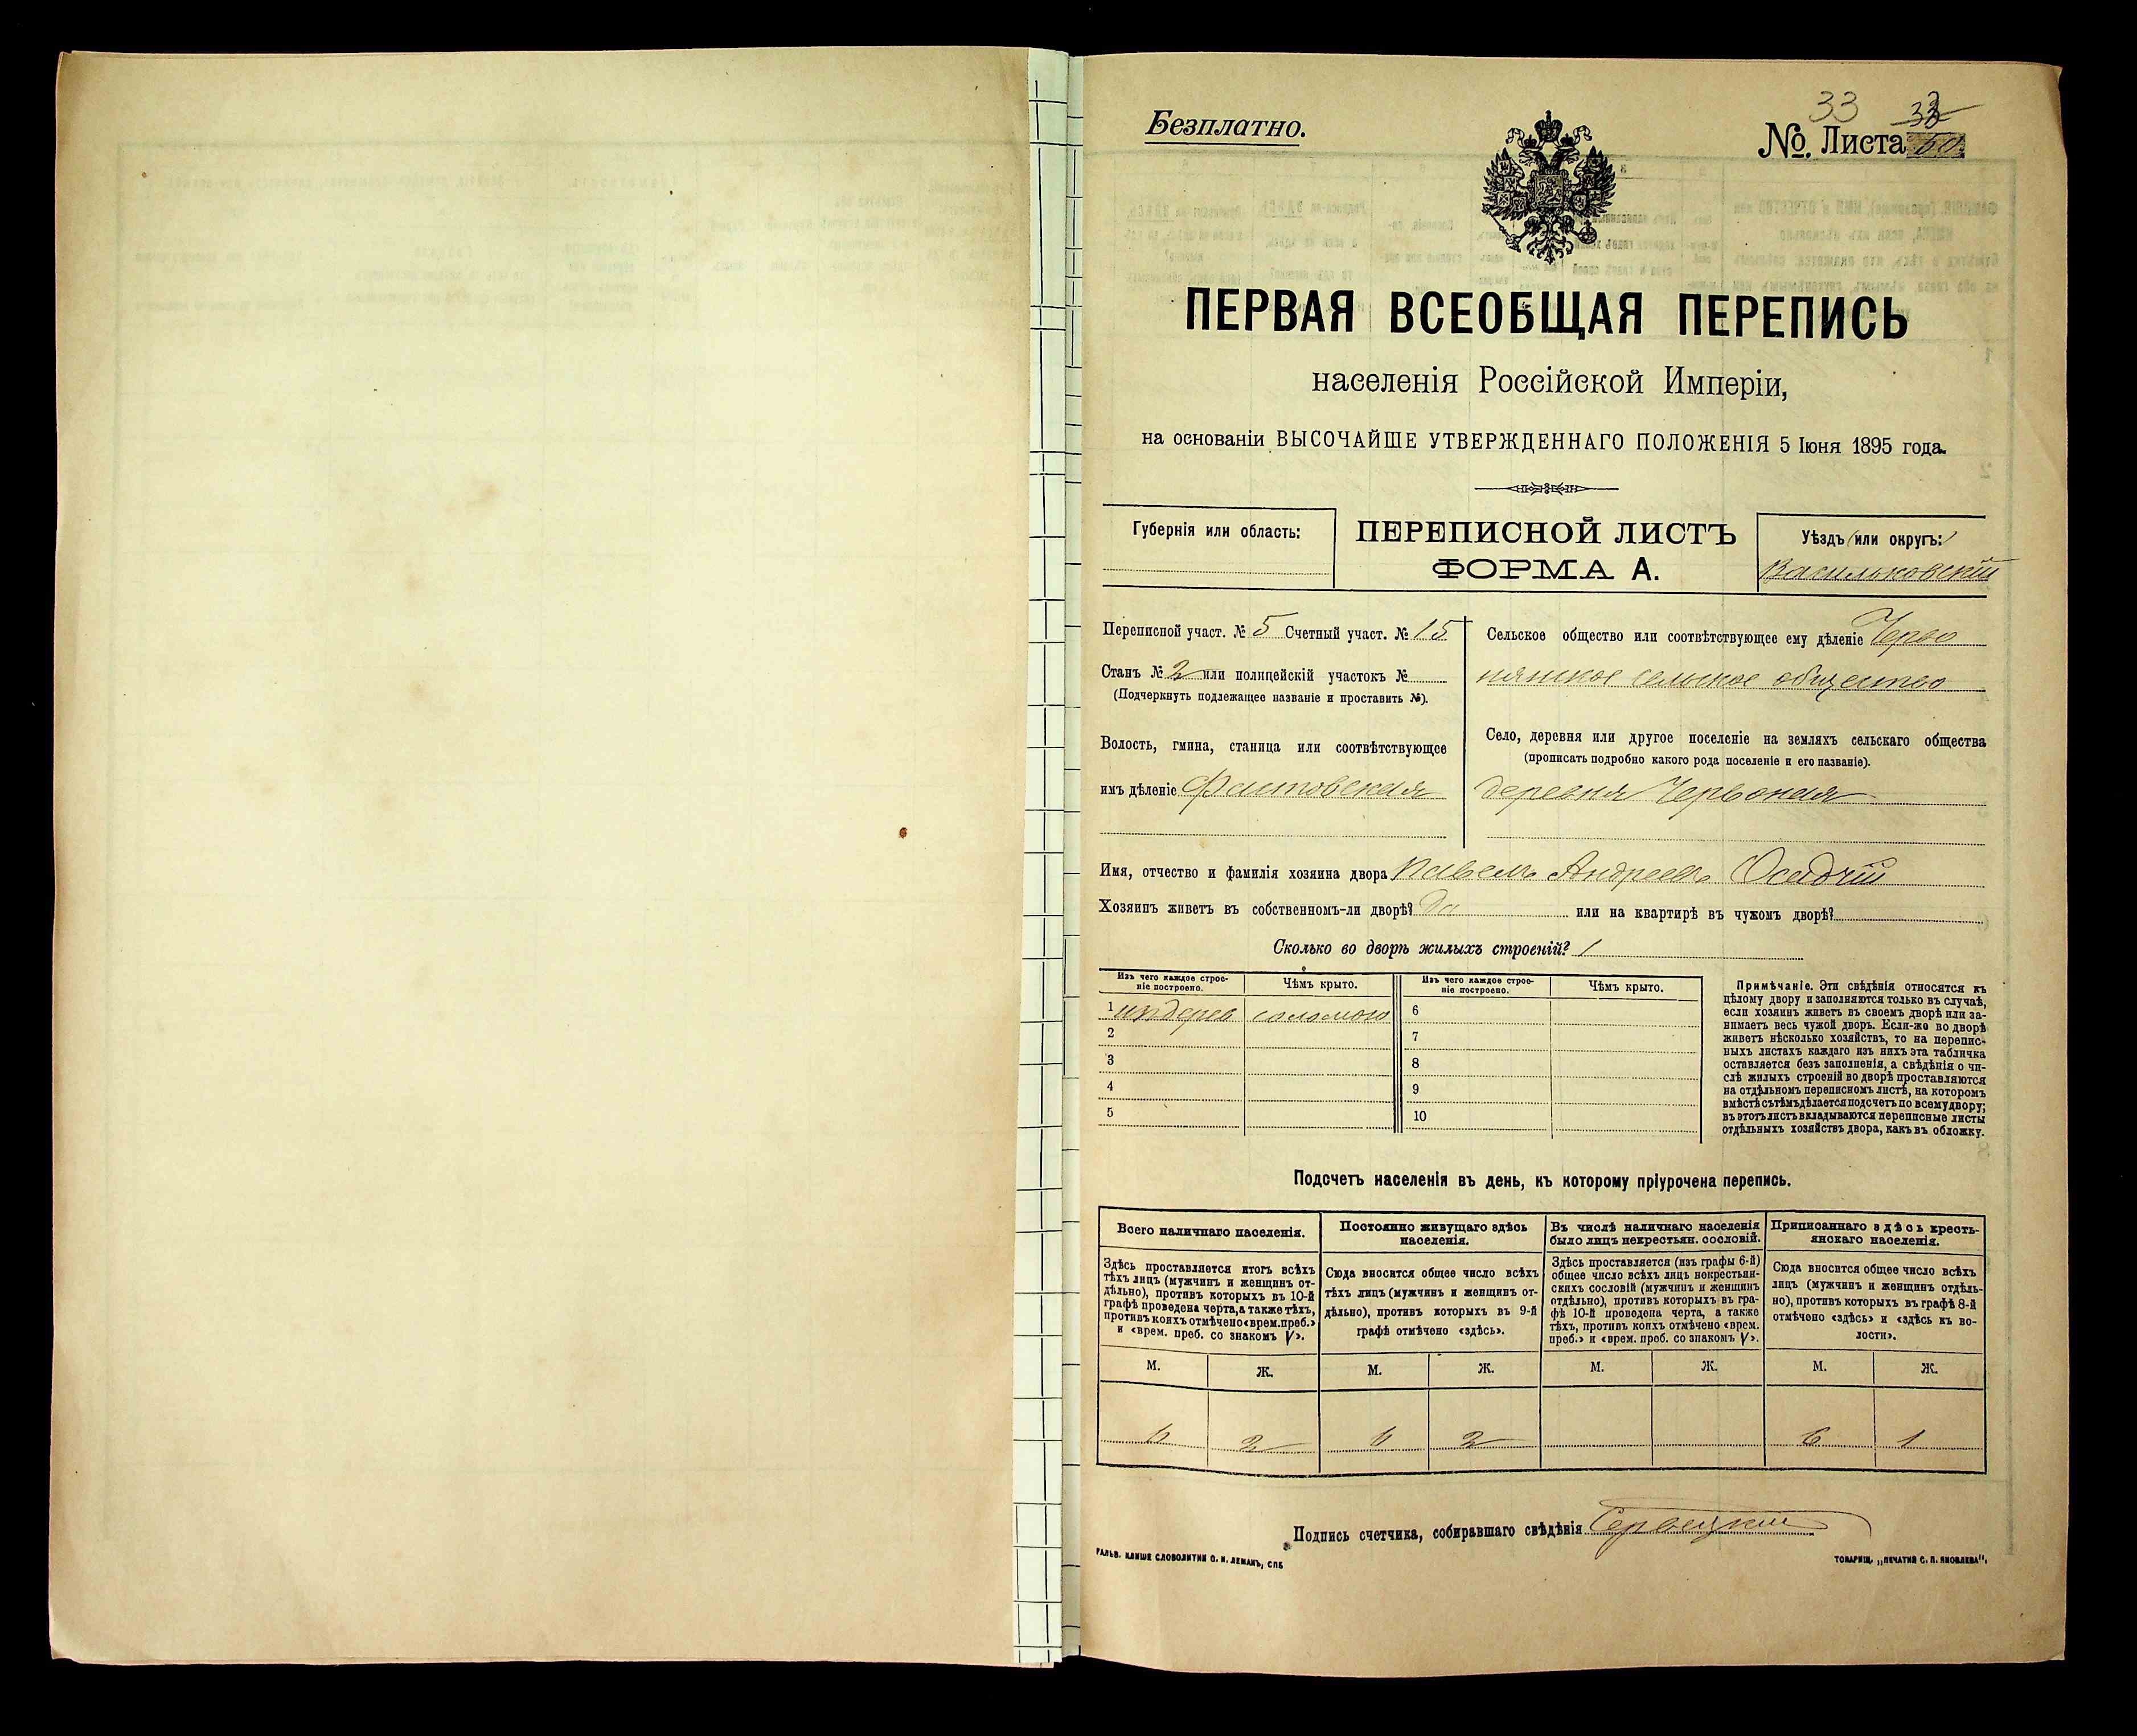 Безплатно.
33 33
№. Листа 50
ПЕРВАЯ ВСЕОБЩАЯ ПЕРЕПИСЬ
населенія Россійской Имперіи,
на основаніи ВЫСОЧАЙШЕ УТВЕРЖДЕННАГО ПОЛОЖЕНІЯ 5 Іюня 1895 года.
Губернія или область:
ПЕРЕПИСНОЙ ЛИСТЪ
ФОРМА А.
Уѣздъ или округъ:
Васильковскій
Переписной участ. № 5 Счетный участ. № 15
Станъ № 2 или полицейскій участокъ №
(Подчеркнуть подлежащее названіе и проставить №).
Волость, гмина, станица или соотвѣтствующее
имъ дѣленіе Фастовская
Сельское общество или соотвѣтствующее ему дѣленіе Черво
нянское сельское общество
Село, деревня или другое поселеніе на земляхъ сельскаго общества
(прописать подробно какого рода поселеніе и его названіе).
деревня Червоная
Имя, отчество и фамилія хозяина двора Павелъ Андреевъ Осадчій
Хозяинъ живетъ въ собственномъ-ли дворѣ? да или на квартирѣ въ чужомъ дворѣ?
Сколько во дворѣ жилыхъ строеній? 1
Изъ чего каждое строе-
ніе построено.
Чѣмъ крыто.
Изъ чего каждое строе-
ніе построено.
Чѣмъ крыто.
1 издерев соломою 6
2 7
3 8
4 9
5 10
Примѣчаніе. Эти свѣдѣнія относятся къ
цѣлому двору и заполняются только въ случаѣ,
если хозяинъ живетъ въ своемъ дворѣ или за-
нимаетъ весь чужой дворъ. Если-же во дворѣ
живетъ нѣсколько хозяйствъ, то на перепис-
ныхъ листахъ каждаго изъ нихъ эта табличка
оставляется безъ заполненія, а свѣдѣнія о чи-
слѣ жилыхъ строеній во дворѣ проставляются
на отдѣльномъ переписномъ листѣ, на которомъ
вмѣстѣ съ тѣмъ дѣлается подсчетъ по всему двору;
въ этотъ листъ вкладываются переписные листы
отдѣльныхъ хозяйствъ двора, какъ въ обложку.
Подсчетъ населенія въ день, къ которому пріурочена перепись.
Всего наличнаго населенія.
Здѣсь проставляется итогъ всѣхъ
тѣхъ лицъ (мужчинъ и женщинъ от-
дѣльно), противъ которыхъ въ 10-й
графѣ проведена черта, а также тѣхъ,
противъ коихъ отмѣчено «врем. преб.»
и «врем. преб. со знакомъ V».
Постоянно живущаго здѣсь
населенія.
Сюда вносится общее число всѣхъ
тѣхъ лицъ (мужчинъ и женщинъ от-
дѣльно), противъ которыхъ въ 9-й
графѣ отмѣчено «здѣсь».
Въ числѣ наличнаго населенія
было лицъ некрестьян. сословій.
Здѣсь проставляется (изъ графы 6-й)
общее число всѣхъ лицъ некрестьян-
скихъ сословій (мужчинъ и женщинъ
отдѣльно), противъ которыхъ въ гра-
фѣ 10-й проведена черта, а также
тѣхъ, противъ коихъ отмѣчено «врем.
преб.» и «врем. преб. со знакомъ V».
Приписаннаго здѣсь кресть-
янскаго населенія.
Сюда вносится общее число всѣхъ
лицъ (мужчинъ и женщинъ отдѣль-
но), противъ которыхъ въ графѣ 8-й
отмѣчено «здѣсь» и «здѣсь къ во-
лости».
М. Ж. М. Ж. М. Ж. М. Ж.
6 2 6 2 6 1
Подпись счетчика, собиравшаго свѣдѣнія
ГАЛЬВ. КЛИШЕ СЛОВОЛИТНИ О. И. ЛЕМАНЪ, СПБ
ТОВАРИЩ. „ПЕЧАТНЯ С. П. ЯКОВЛЕВА".